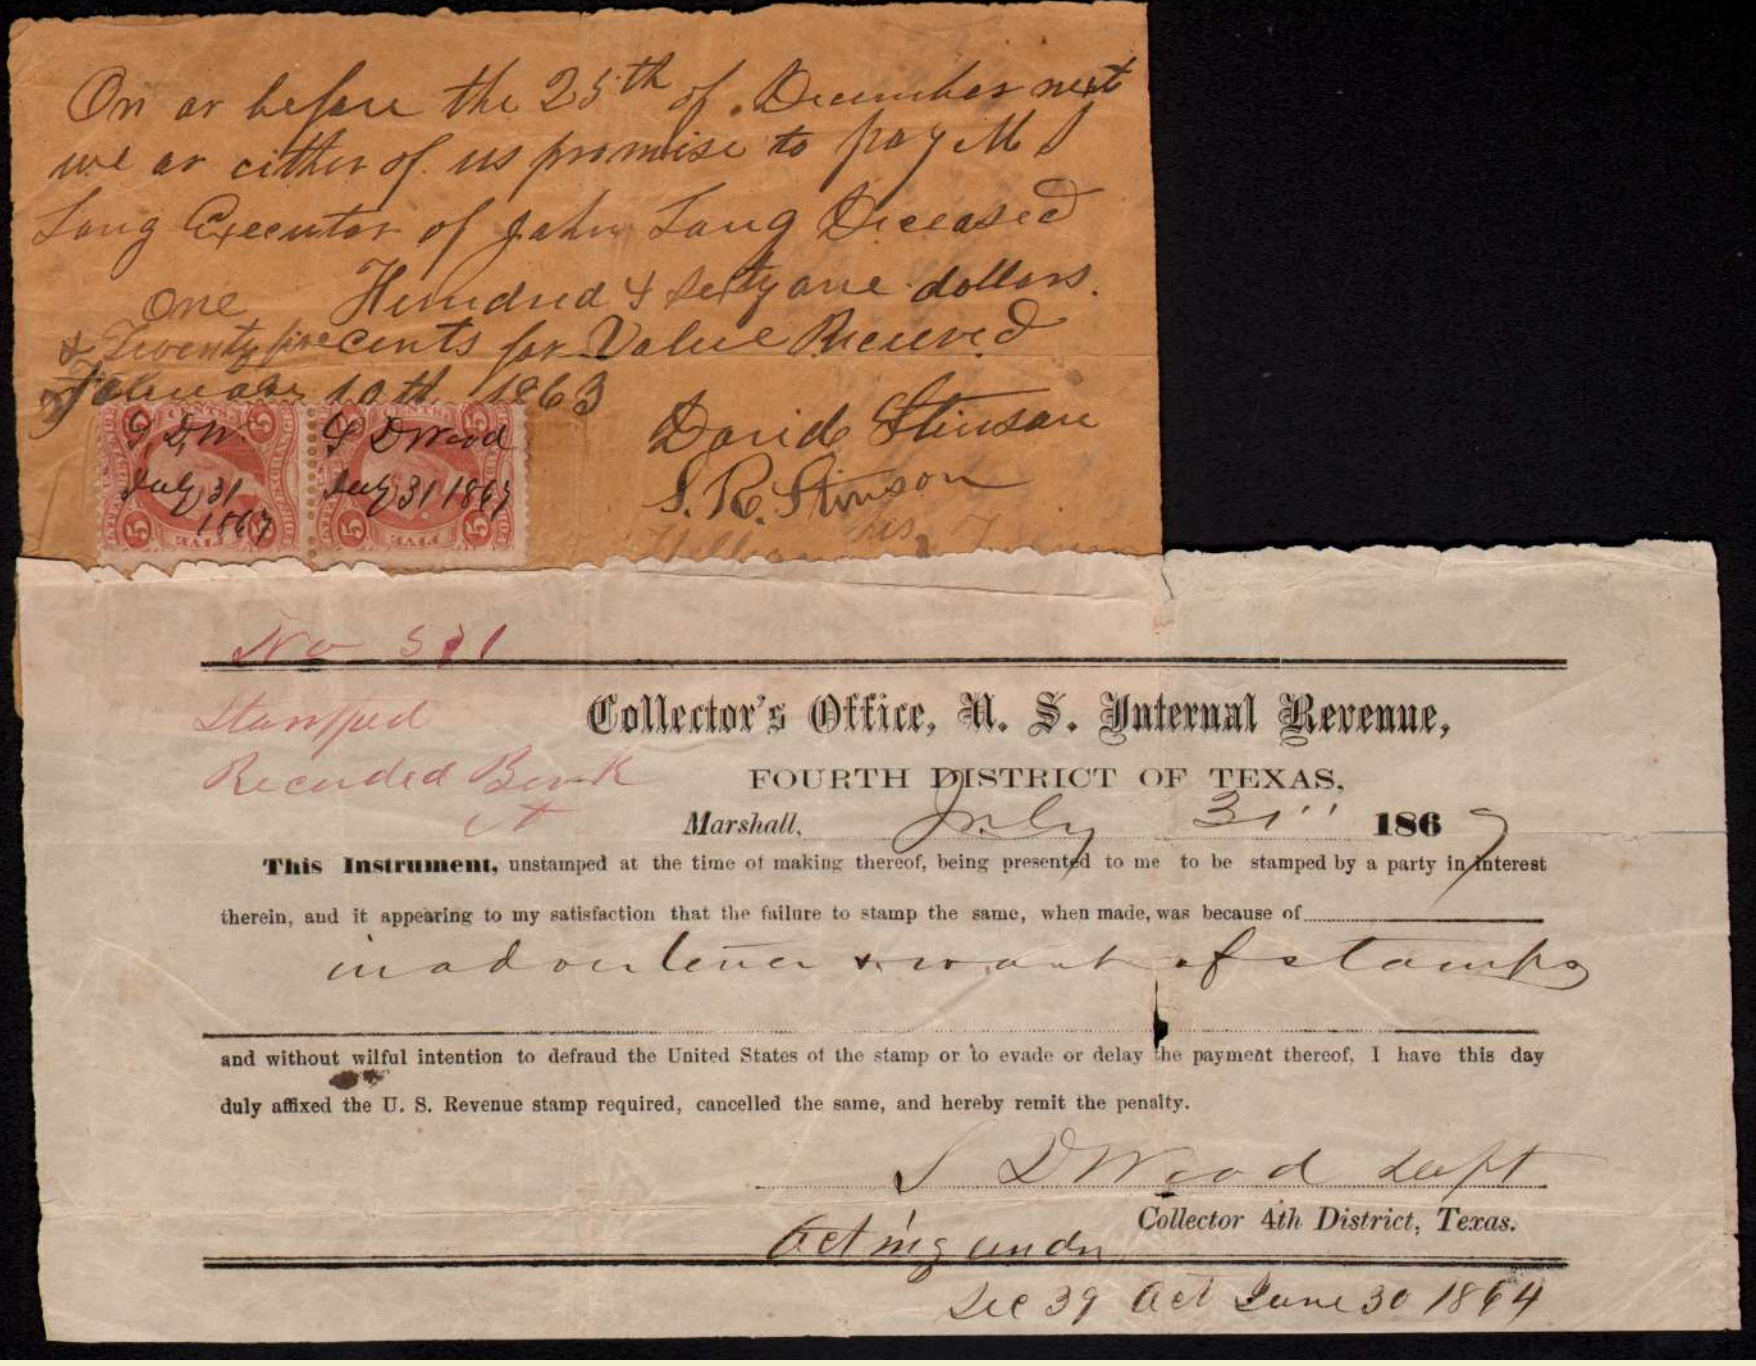 On or before the 25th of December next
we or either of us promise to pay M S
Lang Executor of John Lang Deceased
One Hundred & sixty one dollars.
& Twenty five cents for Value Received
February 10th 1863
S D W.
July 31
1867
S D Wood
July 31 1867
David Stinson
S. R. Stinson
his
No 591
Stamped
Recorded Book
A
Collector's Office, U. S. Internal Revenue,
FOURTH DISTRICT OF TEXAS,
Marshall, July 31'' 1867
This Instrument, unstamped at the time of making thereof, being presented to me to be stamped by a party in interest
therein, and it appearing to my satisfaction that the failure to stamp the same, when made, was because of
inadvertence & want of stamps
and without wilful intention to defraud the United States of the stamp or to evade or delay the payment thereof, I have this day
duly affixed the U. S. Revenue stamp required, cancelled the same, and hereby remit the penalty.
S D Wood Dept
Collector 4th District, Texas.
Acting under
Sec 39 Act June 30 1864